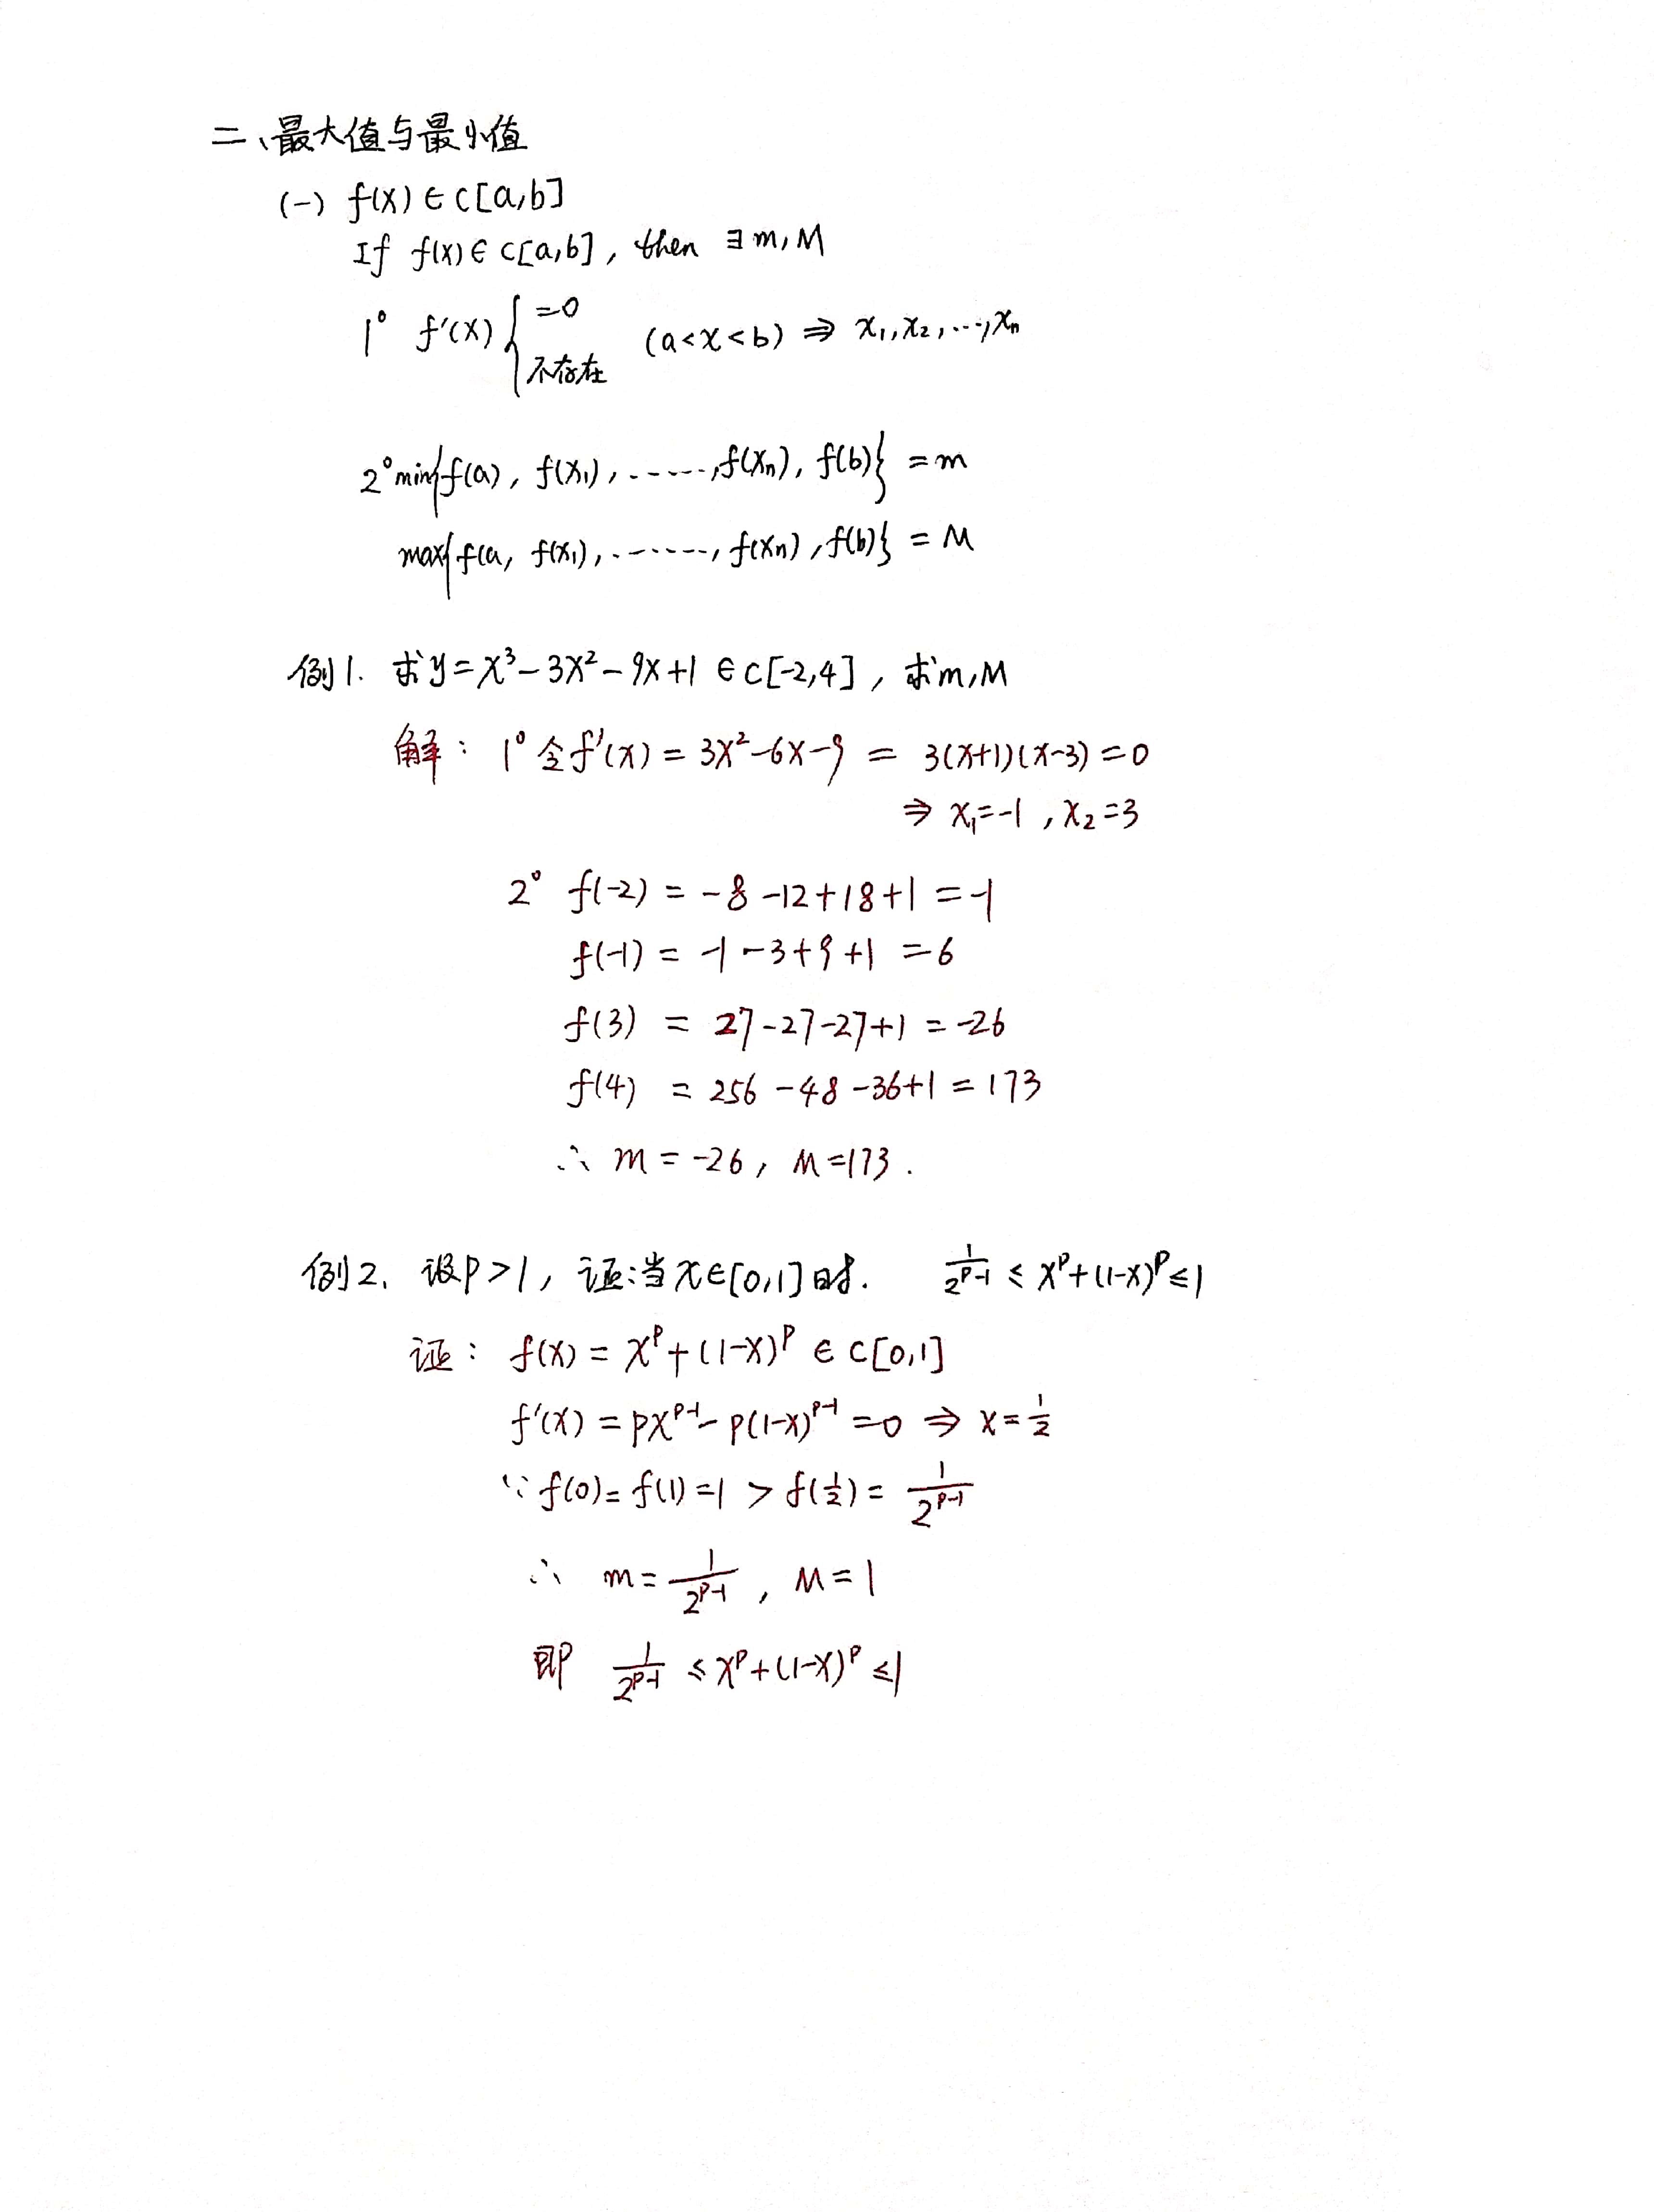 二、最大值与最小值
(一) f(x)∈C[a,b]
If f(x)∈C[a,b], then ∃m,M
1° f'(x){=0 不存在 (a<x<b) ⇒ x₁,x₂,…,xₙ
2° min{f(a), f(x₁),……,f(xₙ), f(b)} = m
max{f(a, f(x₁),……, f(xₙ), f(b)} = M
例1. 求y=x³-3x²-9x+1∈C[-2,4], 求m,M
解: 1° 令f'(x)=3x²-6x-9 = 3(x+1)(x-3)=0
⇒ x₁=-1, x₂=3
2° f(-2) = -8-12+18+1=-1
f(-1) = -1-3+9+1=6
f(3) = 27-27-27+1=-26
f(4) = 256-48-36+1=173
∴ m=-26, M=173.
例2. 设p>1, 证:当x∈[0,1]时. 1/2^(p-1) ≤ x^p+(1-x)^p ≤ 1
证: f(x)=x^p+(1-x)^p ∈ C[0,1]
f'(x)=px^(p-1)-p(1-x)^(p-1)=0 ⇒ x=1/2
∵ f(0)=f(1)=1 > f(1/2)= 1/2^(p-1)
∴ m=1/2^(p-1), M=1
即 1/2^(p-1) ≤ x^p+(1-x)^p ≤ 1